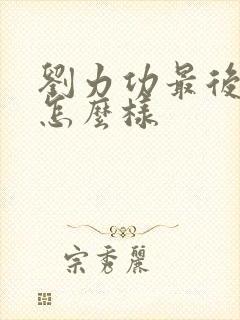 劉力功最後
怎麼樣
宗秀麗